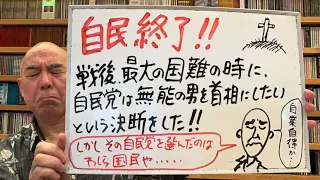 自民終了!!
戦後、最大の国難の時に、
自民党は無能の男を首相にしたい
という決断をした!!
しかしその自民党を選んだのは
わしら国民や.....
自業自得か…